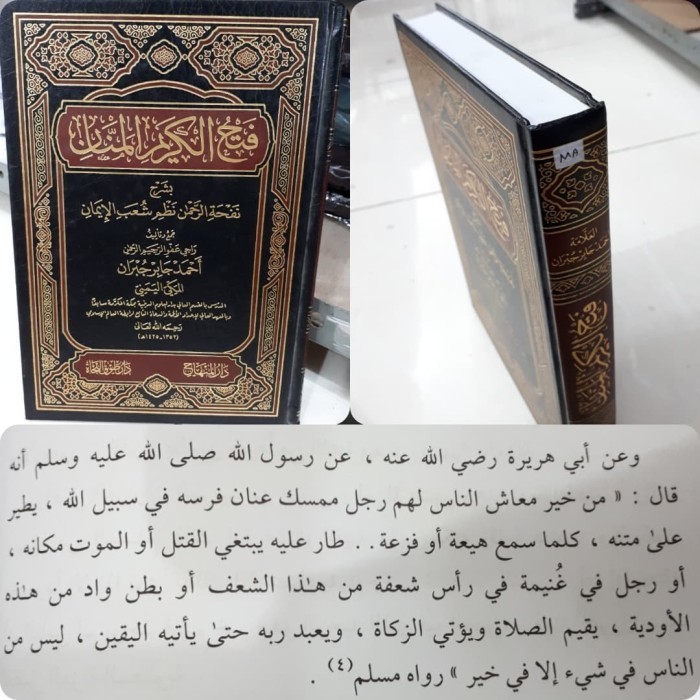 فتح الكريم المنان
بشرح
نفحة الرحمن نظم شعب الإيمان
جمع وتأليف
راجي عفو الرحيم الرحمن
أحمد جابر جبران
المكي اليمني
رحمه الله تعالى
(١٣٥٢-١٤٢٥هـ)
دار المنهاج
دار طوق النجاة
MA
العلامة
أحمد جابر جبران
وعن أبي هريرة رضي الله عنه ، عن رسول الله صلى الله عليه وسلم أنه
قال : « من خير معاش الناس لهم رجل ممسك عنان فرسه في سبيل الله ، يطير
علىٰ متنه ، كلما سمع هيعة أو فزعة . . طار عليه يبتغي القتل أو الموت مكانه ،
أو رجل في غُنيمة في رأس شعفة من هـٰذا الشعف أو بطن واد من هـٰذه
الأودية ، يقيم الصلاة ويؤتي الزكاة ، ويعبد ربه حتىٰ يأتيه اليقين ، ليس من
الناس في شيء إلا في خير » رواه مسلم(٤) .